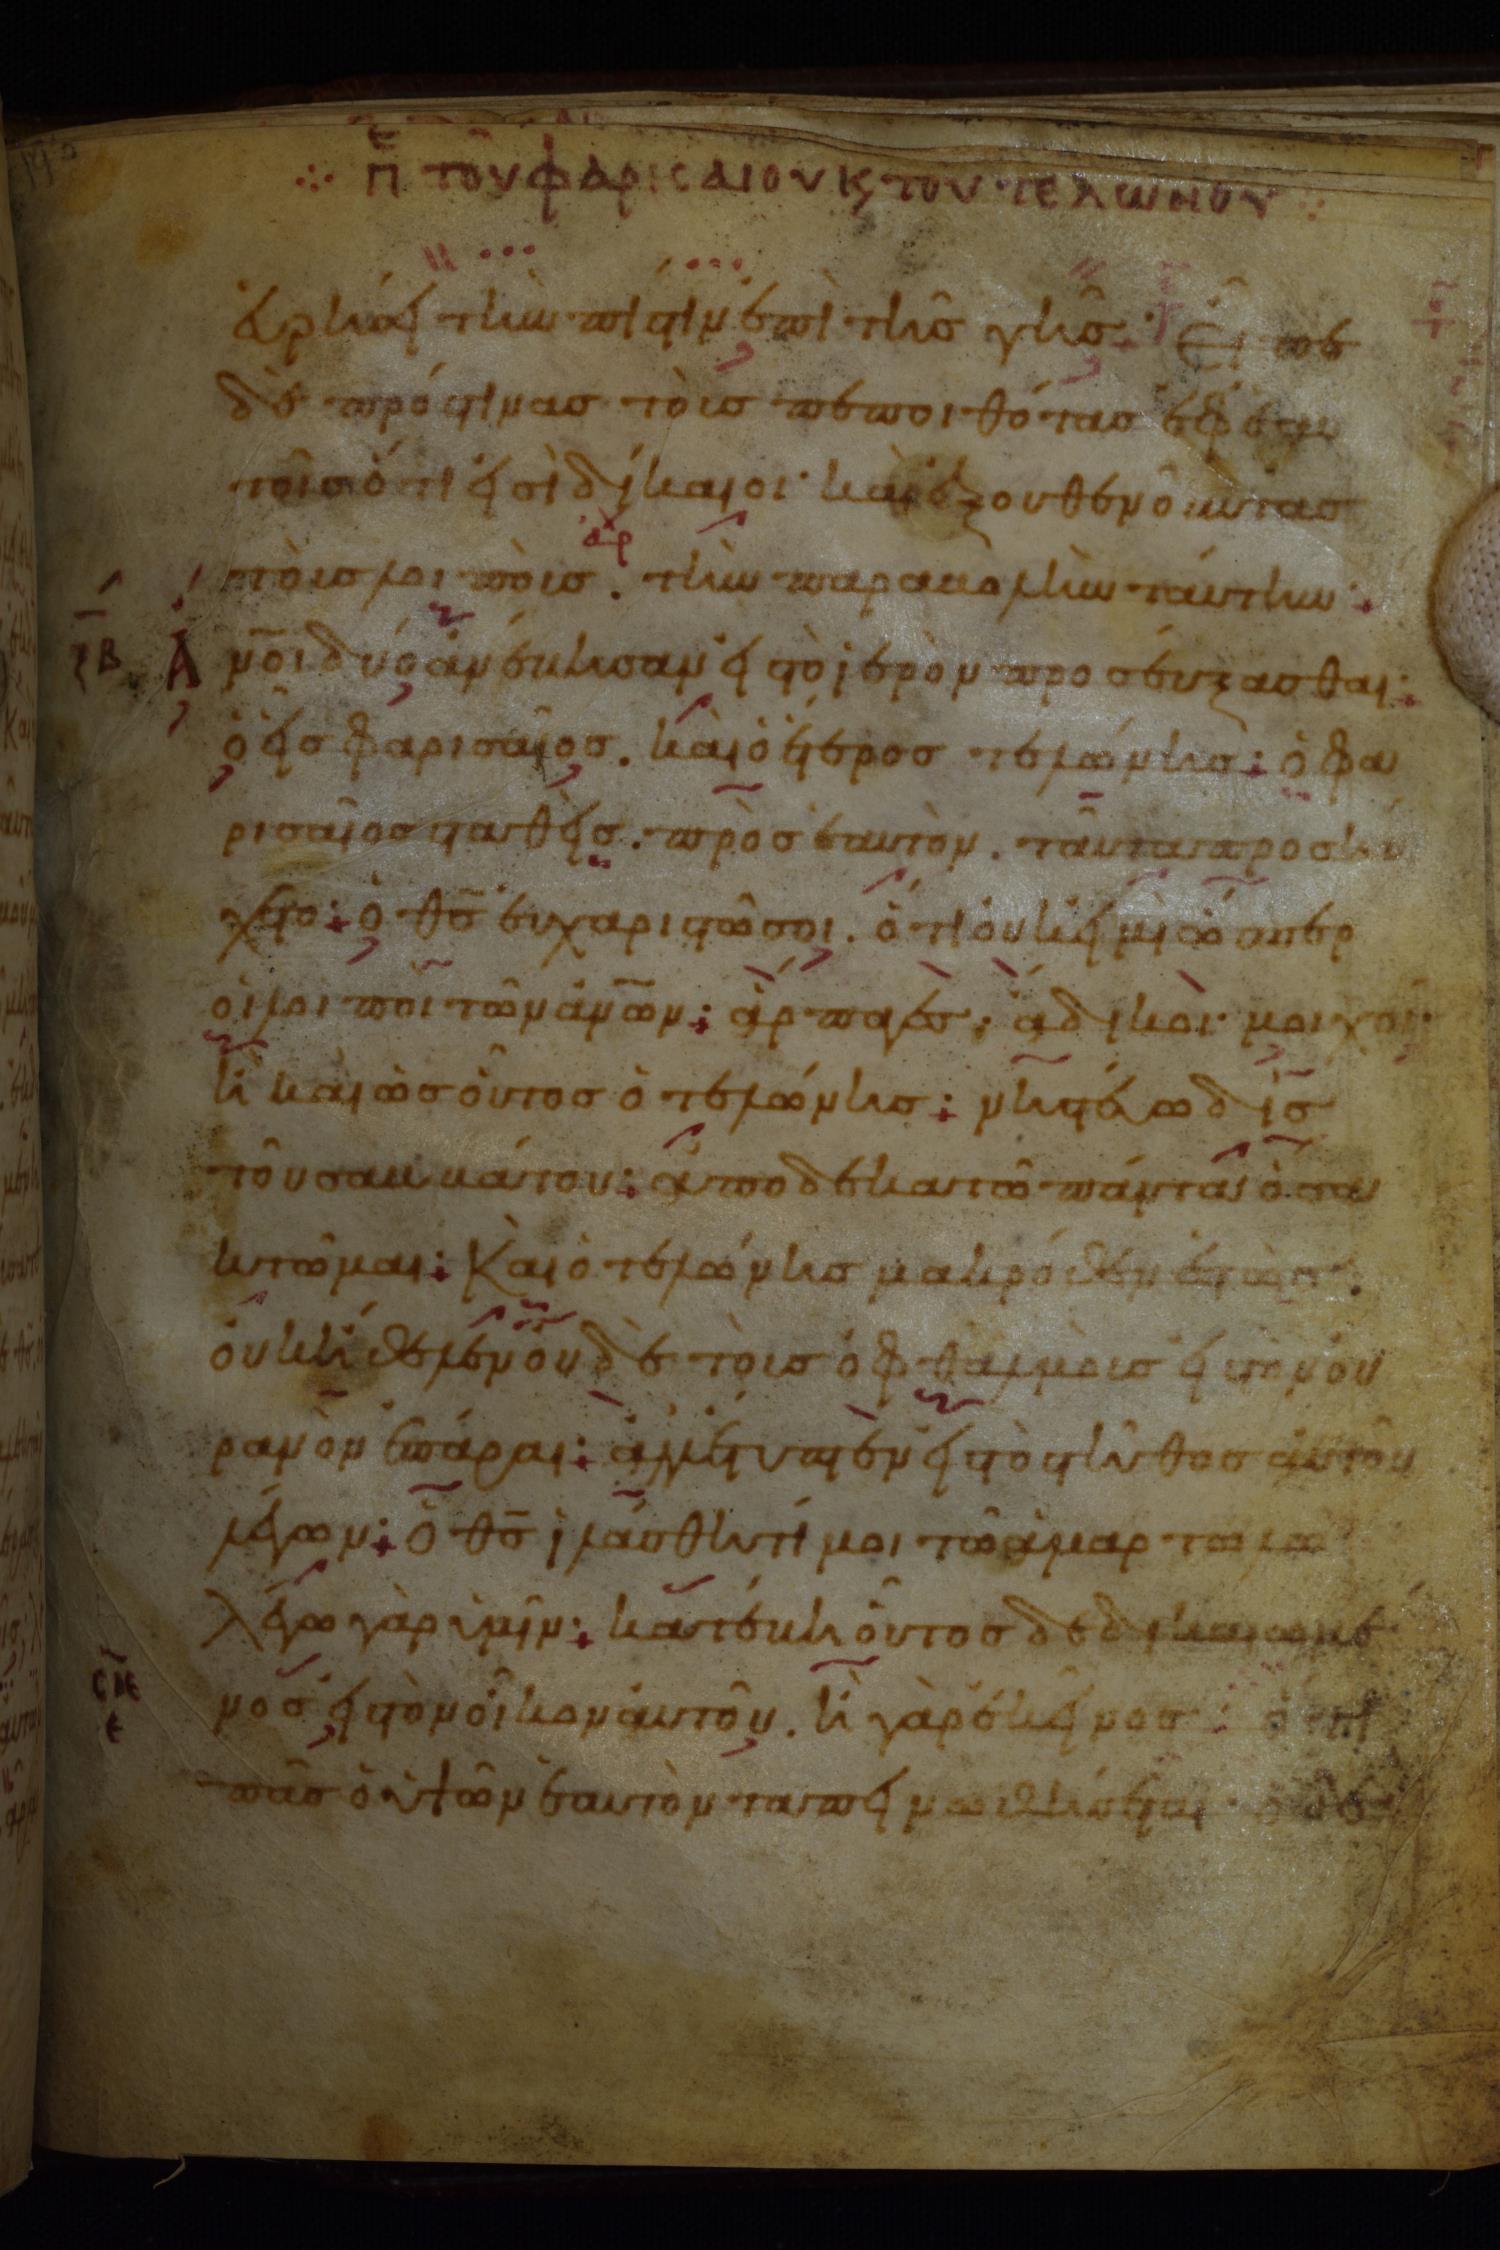 πε του φαρισαιου κς του τελωνου
ἁρήσει τὴν πίστιν ἐπὶ τῆσ γῆσ· Εἶπε
δὲ πρόστινασ τοὺσ πεποιθότασ ἐφ ἑαυ
τοῖσ ὅτι εἰσὶ δίκαιοι· καὶ ἐξουθενοῦντασ
ἀρ
τοὺσ λοιποὺσ. τὴν παραβολὴν ταύτην:
ξβ Ἀ
νοι δύο ἀνέβησαν εἰσ τὸ ἱερὸν προσεύξασθαι:
ὁ εἷσ φαρισαῖοσ. καὶ ὁ ἕτεροσ τελώνησ: ὁ φα
ρισαῖοσ σταθεὶσ. πρὸσ ἑαυτὸν. ταῦτα προσηύ
χετο: ὁ θσ εὐχαριστῶ σοι. ὅτι οὐκ εἰμὶ ὥσπερ
οἱ λοιποὶ τῶν ἀνων: ἅρπαγεσ· ἄδικοι· μοιχοὶ·
ἢ καὶ ὡσ οὗτοσ ὁ τελώνησ: νηστεύω δὶσ
τοῦ σαββάτου: ἀποδεκατῶ πάντα ὅσα
κτῶμαι: Καὶ ὁ τελώνησ μακρόθεν ἑστὼσ.
οὐκ ἤθελεν οὐδὲ τοὺσ ὀφθαλμοὺσ εἰσ τὸν οὐ
ρανὸν ἐπάραι: ἀλλ ἔτυπτεν εἰσ τὸ στῆθοσ αὐτοῦ
λέγων: ὁ θσ ἱλάσθητί μοι τῶ ἁμαρτωλῶ
λέγω γὰρ ὑμῖν: κατέβη οὗτοσ δεδικαιωμέ
νοσ εἰσ τὸν οἶκον αὐτοῦ. ἢ γὰρ ἐκεῖνοσ: ὅτι
πᾶσ ὁ ὑψῶν ἑαυτὸν ταπεινωθήσεται· ὁ δὲ